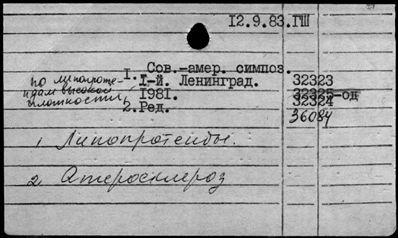 12.9.83.ГШ
1. Сов.-амер. симпоз.
по липопроте- I-й. Ленинград. 32323
идам высокой 1981. 32325-од
плотности, 2. Ред. 32324
36084
1. Липопротеиды.
2. Атеросклероз